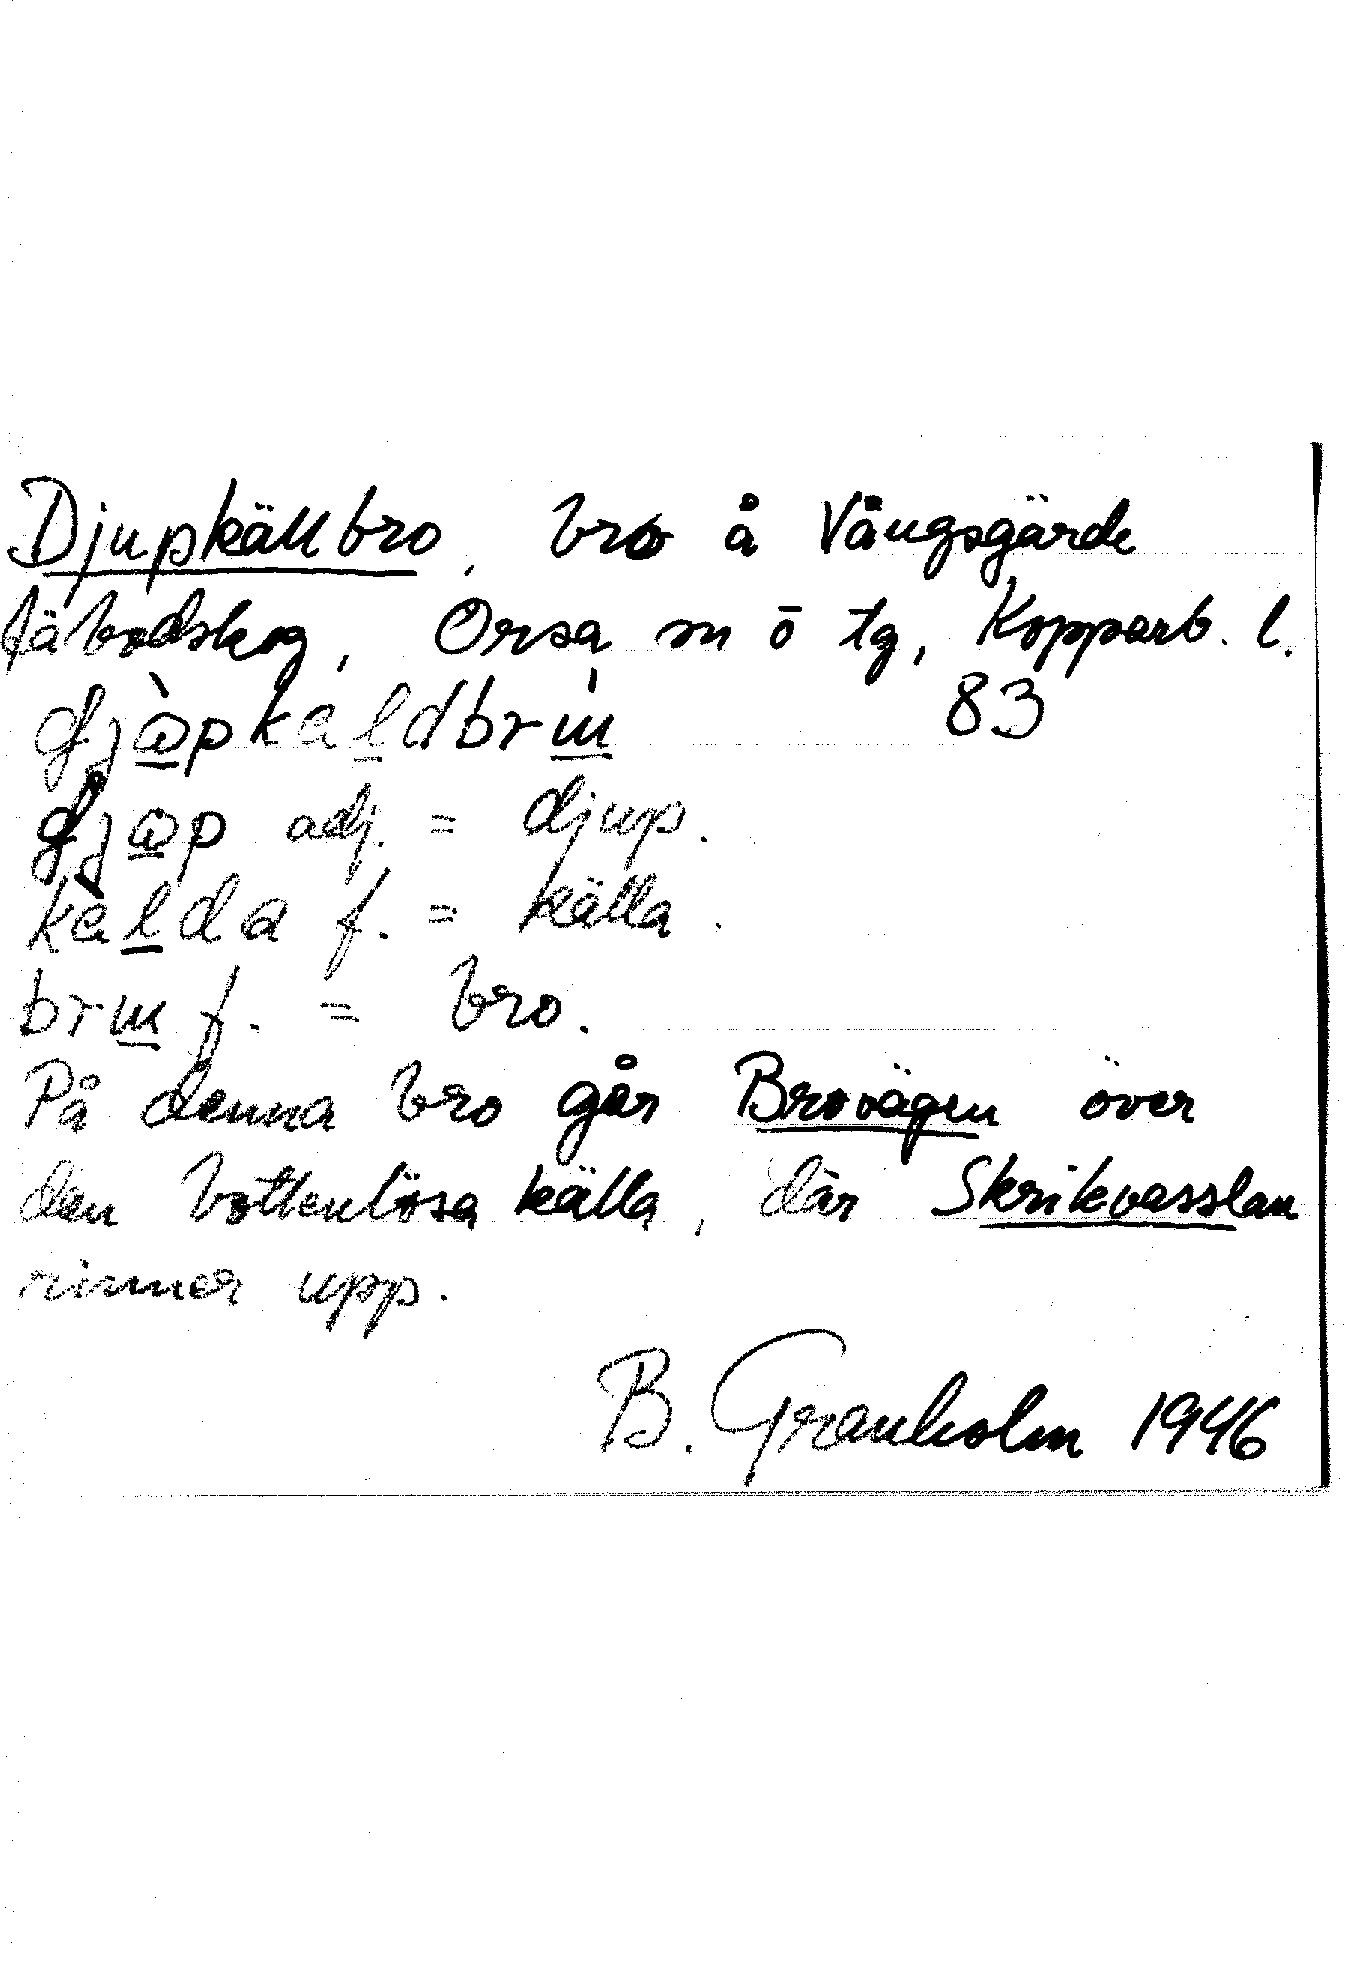 Djupkällbro, bro å Vångsgärde
fäbodskog, Orsa sn ö tg, Kopparb. l.
83
adj. = djup.
kàlda f. = källa.
f. = bro.
På denna bro går Brovägen över
den bottenlösa källa, där Skrikvasslan
rinner upp.
B. Granholm 1946